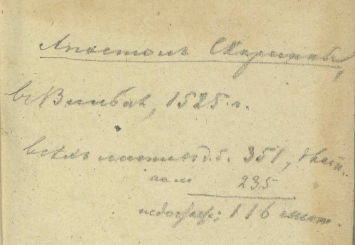 Апостолъ Скорины,
въ Вильнѣ, 1525 г.
всѣхъ листовъ д.б. 351, 
235
недостаетъ: 116 лист.